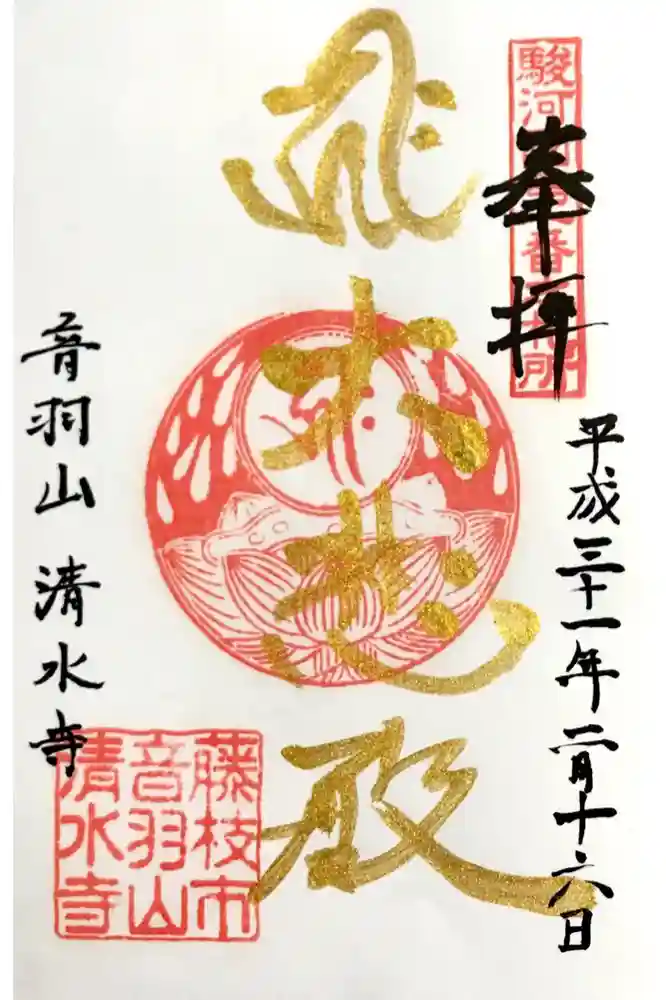 奉拝
平成三十一年二月十六日
大悲殿
音羽山 清水寺
藤枝市
音羽山
清水寺